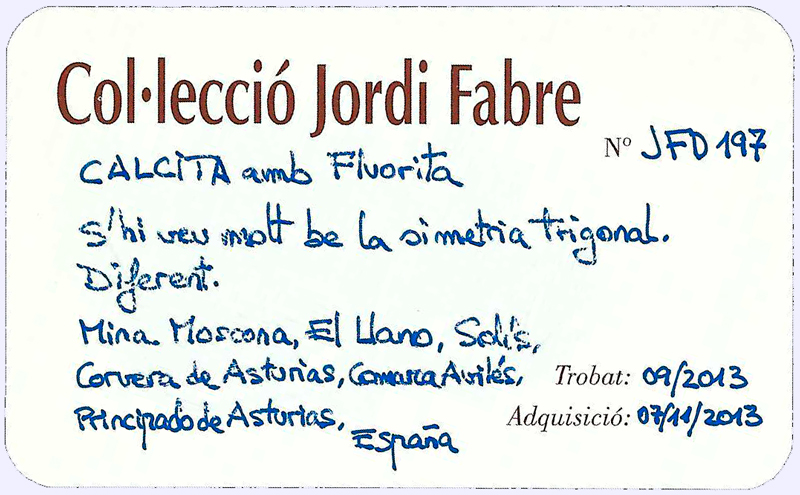 Col·lecció Jordi Fabre
Nº JFD197
CALCITA amb Fluorita
S'hi veu molt be la simetria trigonal.
Diferent.
Mina Moscona, El Llano, Solís,
Corvera de Asturias, Comarca Avilés,
Trobat: 09/2013
Principado de Asturias,
Adquisició: 07/11/2013
España